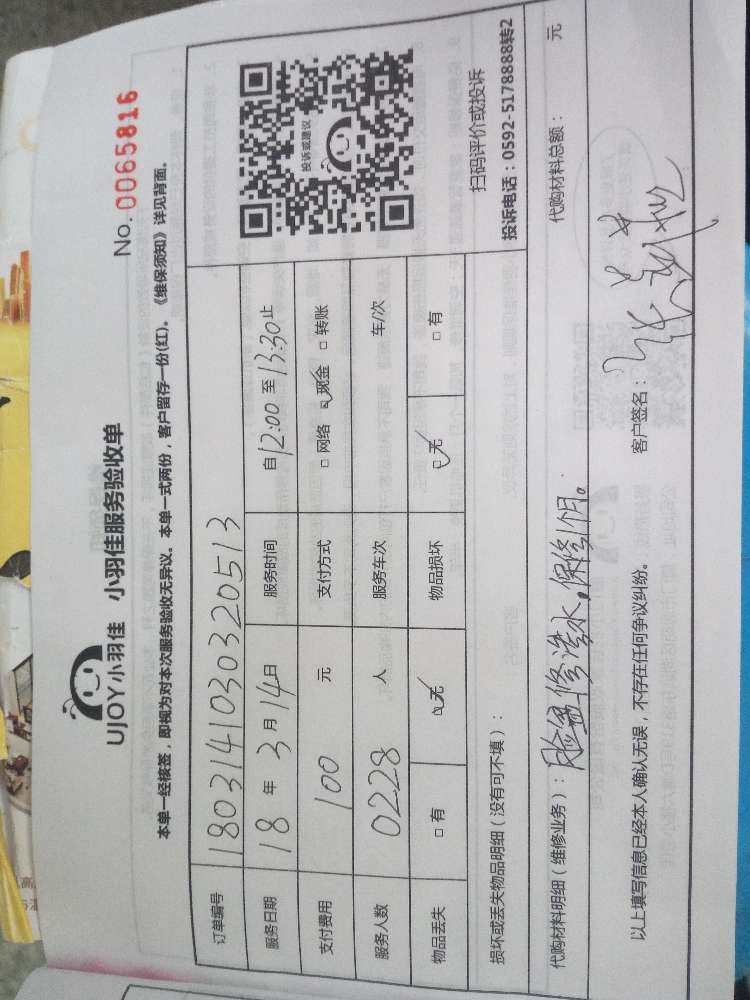 UJOY小羽佳 小羽佳服务验收单
No. 0065816
本单一经核签，即视为对本次服务验收无异议。本单一式两份，客户留存一份(红)。《维保须知》详见背面。
订单编号 180314103032​0513
服务日期 18 年 3 月 14 日 服务时间 自 12:00 至 13:30 止
支付费用 100 元 支付方式 □ 网络 ☑ 现金 □ 转账
服务人数 0228 人 服务车次 车/次
物品丢失 □ 有 ☑ 无 物品损坏 ☑ 无 □ 有
投诉或建议
扫码评价或投诉
投诉电话：0592-5178888转2
损坏或丢失物品明细（没有可不填）：
代购材料明细（维修业务）：脸盆修渗水,保修1个月。 代购材料总额： 元
以上填写信息已经本人确认无误，不存在任何争议纠纷。 客户签名：